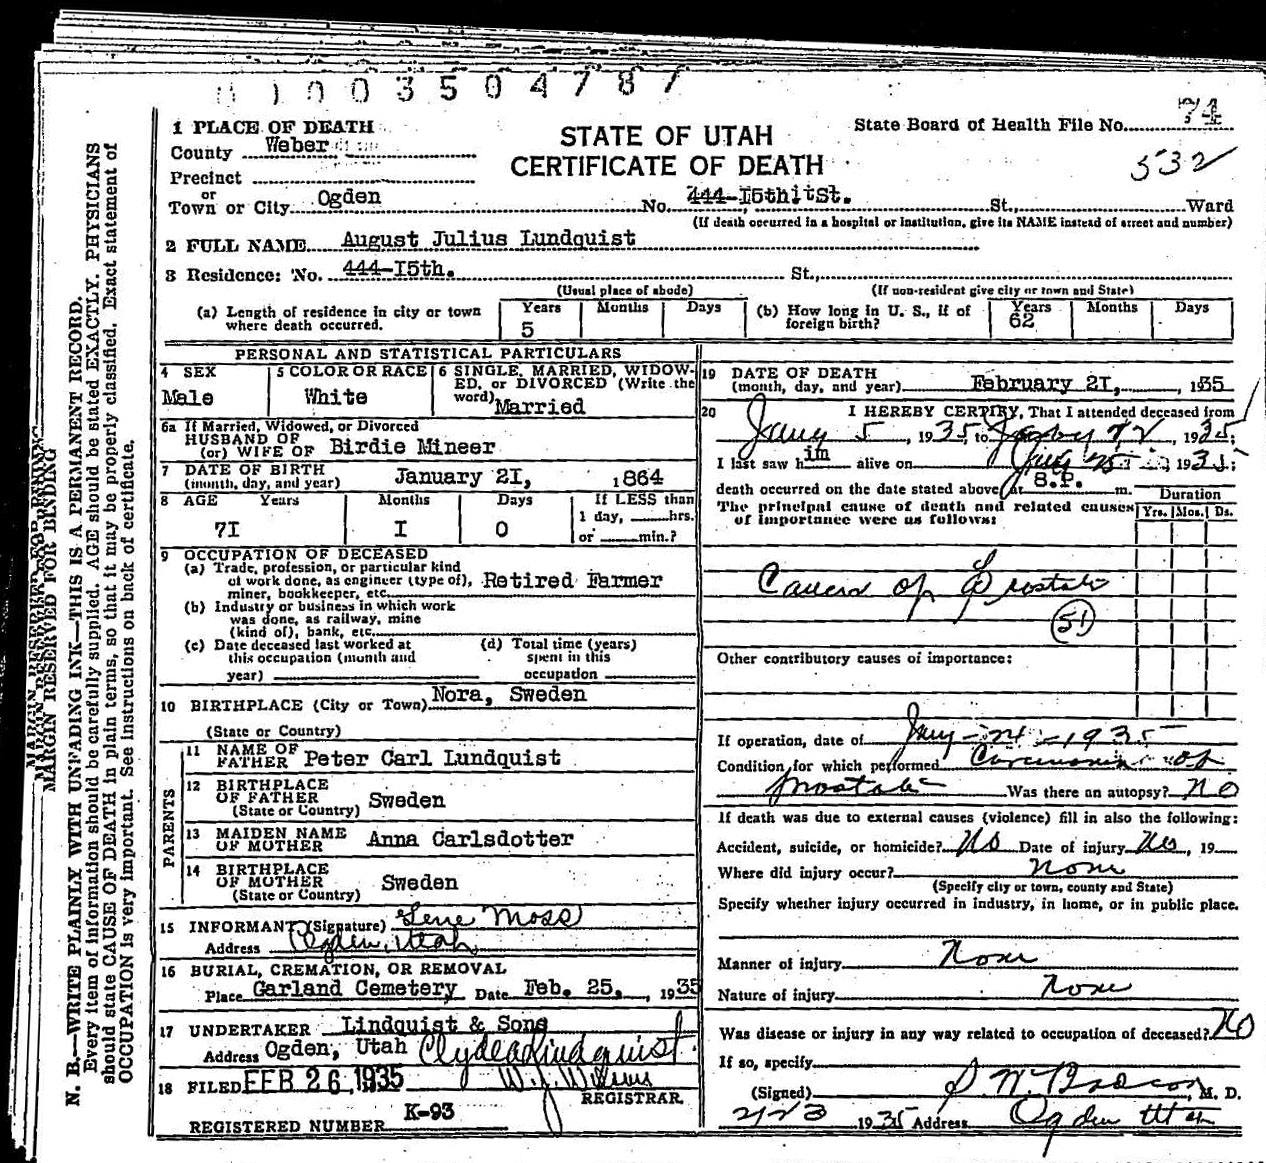 0 1 0 0 3 5 0 4 7 8 7
74
1 PLACE OF DEATH
STATE OF UTAH
CERTIFICATE OF DEATH
State Board of Health File No.
532
County Weber
Precinct
or
Town or City Ogden No. 444-I5th St. St., Ward
(If death occurred in a hospital or institution, give its NAME instead of street and number)
2 FULL NAME August Julius Lundquist
3 Residence: No. 444-I5th. St.,
(Usual place of abode) (If non-resident give city or town and State)
(a) Length of residence in city or town where death occurred. Years 5 Months Days
(b) How long in U. S., if of foreign birth? Years 62 Months Days
PERSONAL AND STATISTICAL PARTICULARS
4 SEX Male
5 COLOR OR RACE White
6 SINGLE, MARRIED, WIDOWED, or DIVORCED (Write the word) Married
6a If Married, Widowed, or Divorced
HUSBAND OF
(or) WIFE OF Birdie Mineer
7 DATE OF BIRTH
(month, day, and year) January 2I, 1864
8 AGE Years 7I Months I Days 0
If LESS than
1 day, hrs.
or min.?
9 OCCUPATION OF DECEASED
(a) Trade, profession, or particular kind
of work done, as engineer (type of),
miner, bookkeeper, etc. Retired Farmer
(b) Industry or business in which work
was done, as railway, mine
(kind of), bank, etc.
(c) Date deceased last worked at
this occupation (month and
year)
(d) Total time (years)
spent in this
occupation
10 BIRTHPLACE (City or Town) Nora, Sweden
(State or Country)
PARENTS
11 NAME OF
FATHER Peter Carl Lundquist
12 BIRTHPLACE
OF FATHER Sweden
(State or Country)
13 MAIDEN NAME
OF MOTHER Anna Carlsdotter
14 BIRTHPLACE
OF MOTHER Sweden
(State or Country)
15 INFORMANT (Signature) Gene Moss
Address Ogden, Utah
16 BURIAL, CREMATION, OR REMOVAL
Place Garland Cemetery Date Feb. 25, , 1935
17 UNDERTAKER Lindquist & Sons
Address Ogden, Utah Clyde Lindquist
18 FILED FEB 26 1935
REGISTRAR.
K-93
REGISTERED NUMBER
19 DATE OF DEATH
(month, day, and year) February 2I, , 1935
20 I HEREBY CERTIFY, That I attended deceased from
Jany 5 , 1935 to , 1935;
I last saw him alive on , 1935;
death occurred on the date stated above at 8.P. m.
The principal cause of death and related causes
of importance were as follows:
Duration
Yrs. Mos. Ds.
Cancer of Prostate
51
Other contributory causes of importance:
If operation, date of Jany - 24 - 1935
Condition for which performed Carcinoma of
prostate Was there an autopsy? No
If death was due to external causes (violence) fill in also the following:
Accident, suicide, or homicide? No Date of injury No , 19
Where did injury occur? None
(Specify city or town, county and State)
Specify whether injury occurred in industry, in home, or in public place.
Manner of injury None
Nature of injury None
Was disease or injury in any way related to occupation of deceased? No
If so, specify
(Signed) M. D.
2/23 1935 Address Ogden Utah
MARGIN RESERVED FOR BINDING
N. B.—WRITE PLAINLY WITH UNFADING INK—THIS IS A PERMANENT RECORD.
Every item of information should be carefully supplied. AGE should be stated EXACTLY. PHYSICIANS
should state CAUSE OF DEATH in plain terms, so that it may be properly classified. Exact statement of
OCCUPATION is very important. See instructions on back of certificate.